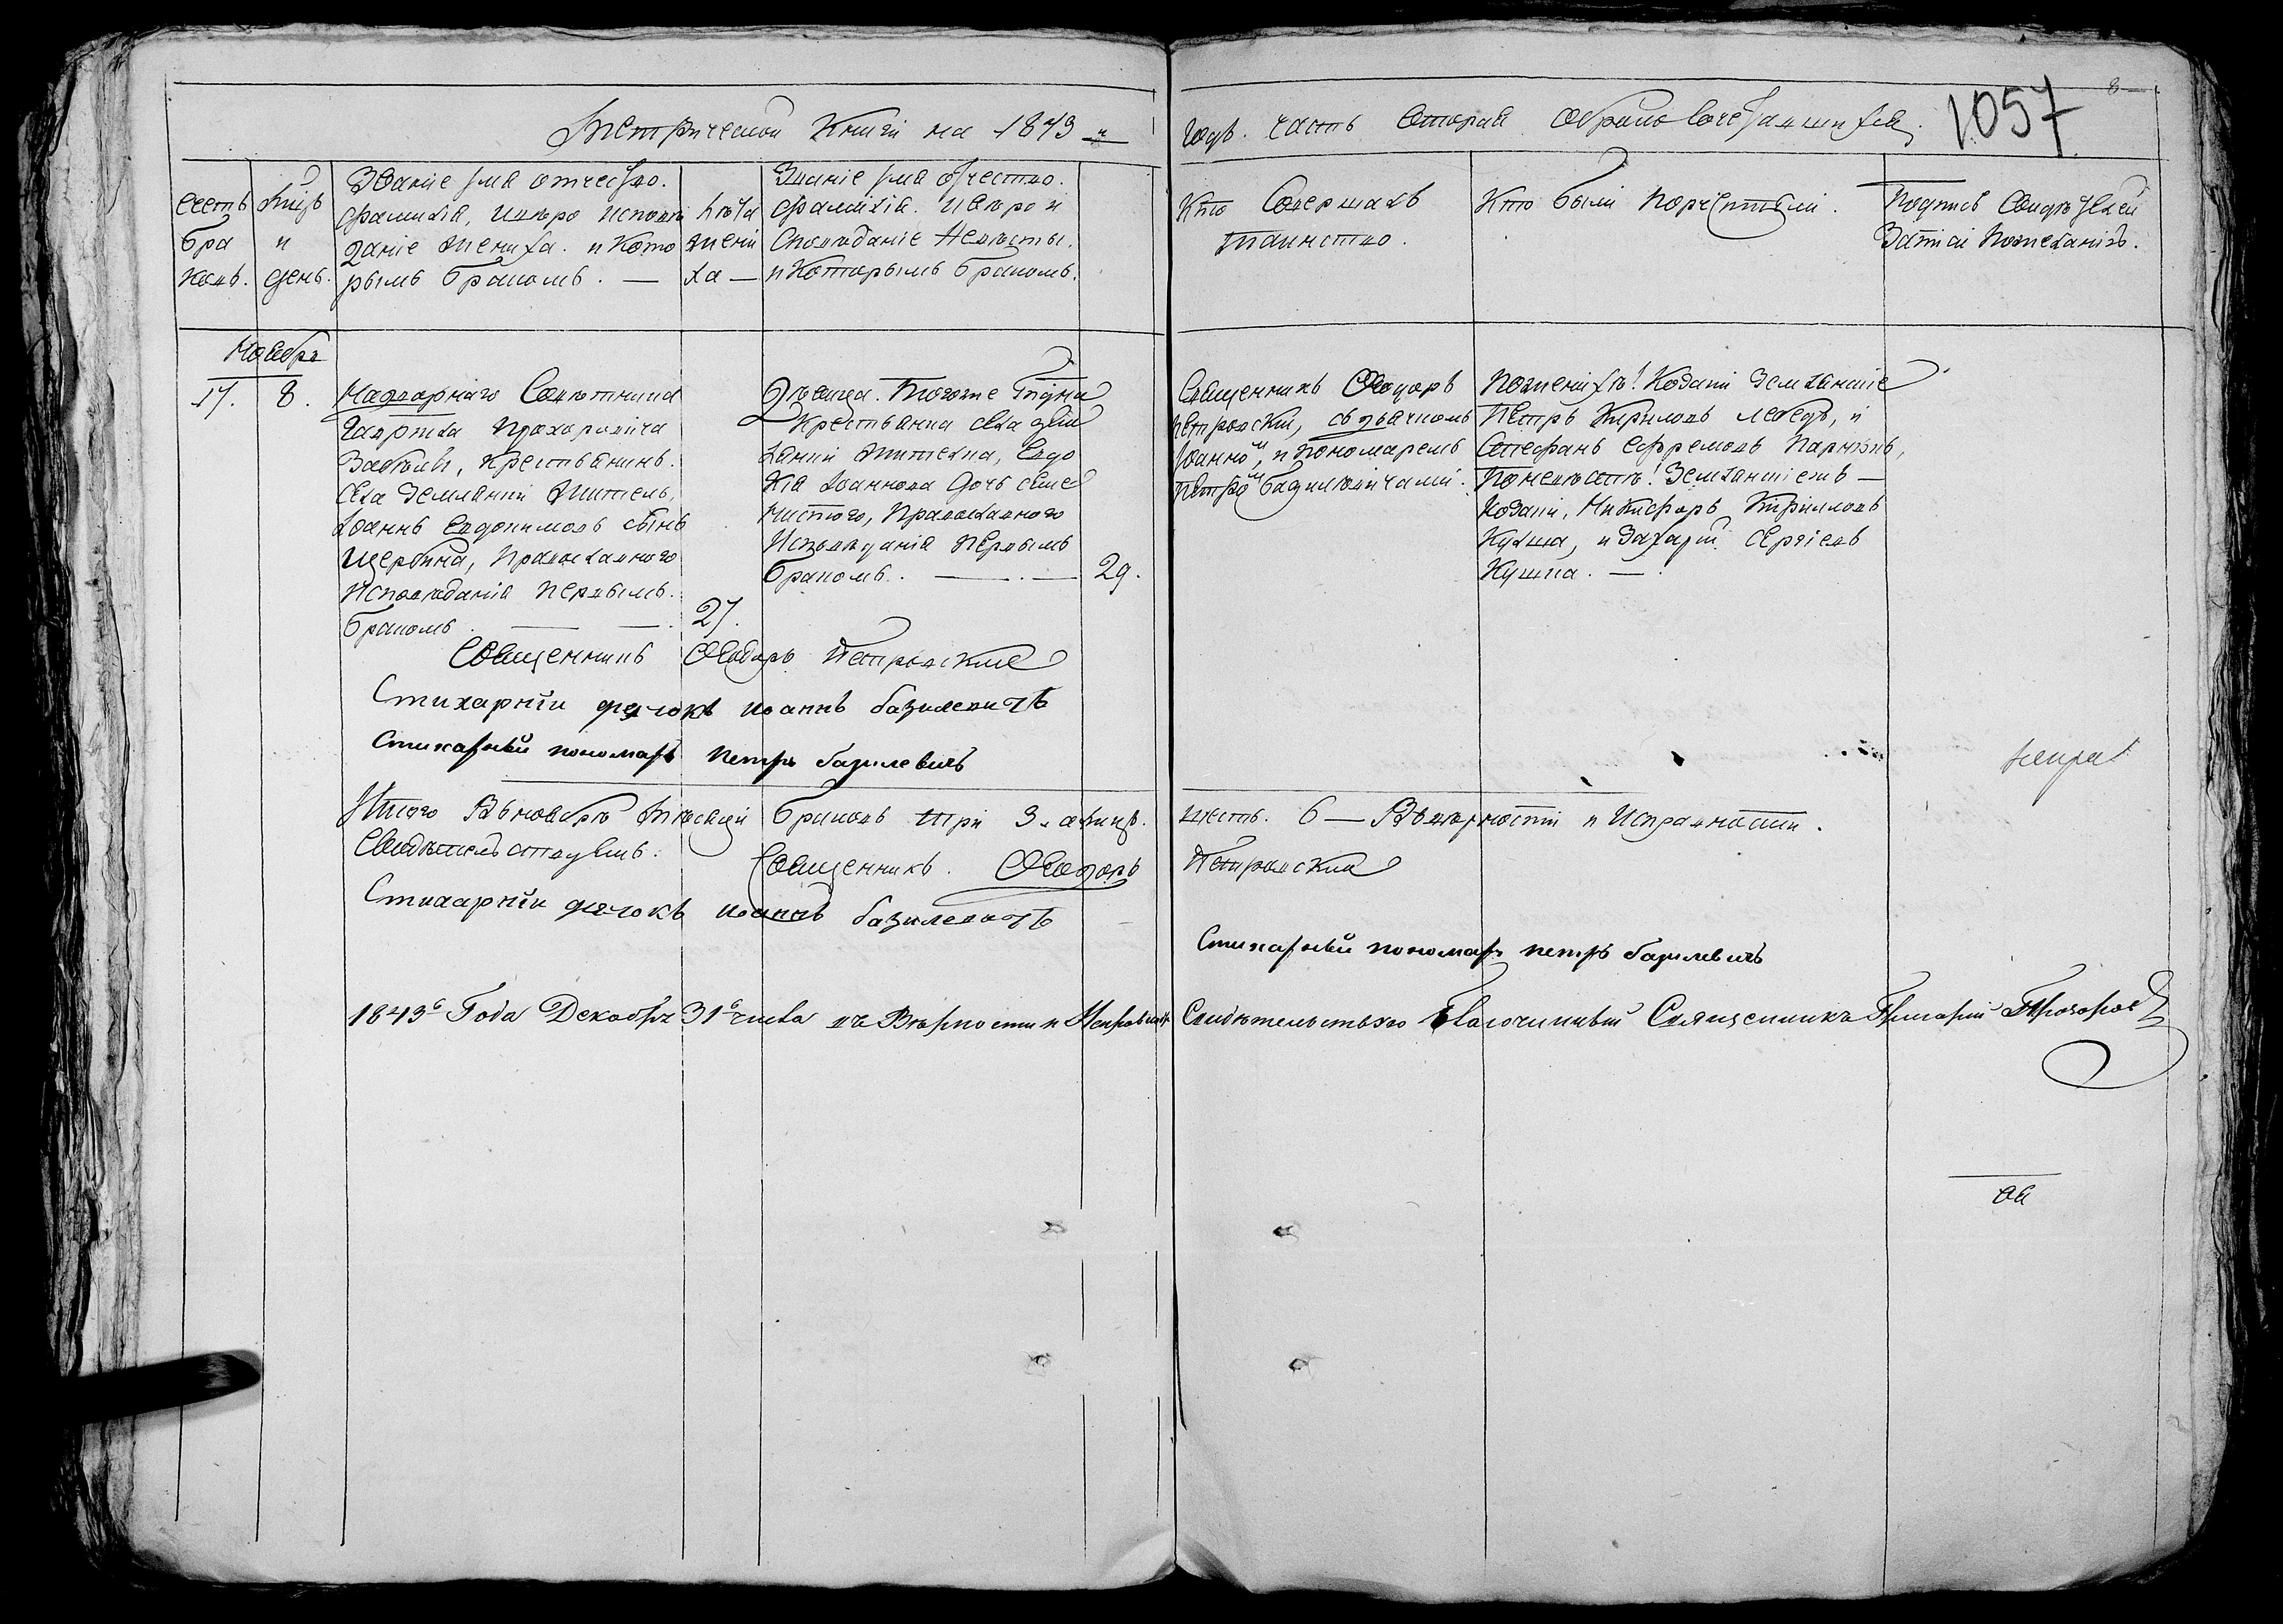 Метрической Книги на 1843 й
годъ. часть вторая о бракосочетавшихся.
1057
8
Счетъ браковъ.
Мцъ и день.
Званіе имя отчество.
фамилія, и вѣроисповѣ
даніе жениха. и кото
рымъ бракомъ. —
Лѣта
жени
ха —
Званіе имя отчество.
фамилія. и вѣрои
сповѣданіе Невѣсты.
и Которымъ бракомъ.
Кто Совершалъ
таинство.
Кто были поручители.
Подпись Свидѣтелей
Записи по желанію.
Ноябрь
17. 8.
Надворнаго Совѣтника
Гавріила Прохоровича
Забѣлы, крестьянинъ.
Села Землянки Житель,
Іоаннъ Евдокимовъ сынъ
Щербина, Православнаго
Исповѣданія первымъ.
бракомъ. — — 27.
Дѣвица. Тогоже Гпдна
Крестьянка села Зем
лянки Жителка, Евдо
кія Іоаннова дочь
Православнаго
Исповѣданія первымъ
бракомъ. — . — 29.
Священникъ Ѳеодоръ
Петровскій, съ дьячкомъ
Іоанномъ, и пономаремъ
Петромъ Базилевичами.
По женихѣ: Козаки Землянскіе
Петръ Кириловъ Лебедь, и
Стефанъ Ефремовъ
По невѣстѣ: Землянскіежъ —
Козаки, Никифоръ Кирилловъ
и Захарій Сергіевъ
Кушка. — .
Священникъ Ѳеодоръ Петровскій
Стихарній дячокъ иоаннъ базилевичъ
Стихарный пономарь петръ базилевичъ
Итого Въ ноябрѣ Мѣсяцѣ браковъ три 3. а лицъ.
шесть. 6 — Въ вѣрности и Исправности.
Свидѣтельствуемъ.
Священникъ. Ѳеодоръ
Петровскій
Стихарній дячокъ иоаннъ базилевичъ
Стихарный пономарь петръ базилевичъ
1843го Года Декабря 31го числа въ Вѣрности и Исправности Свидѣтельствую Благочинный Священникъ Григорій